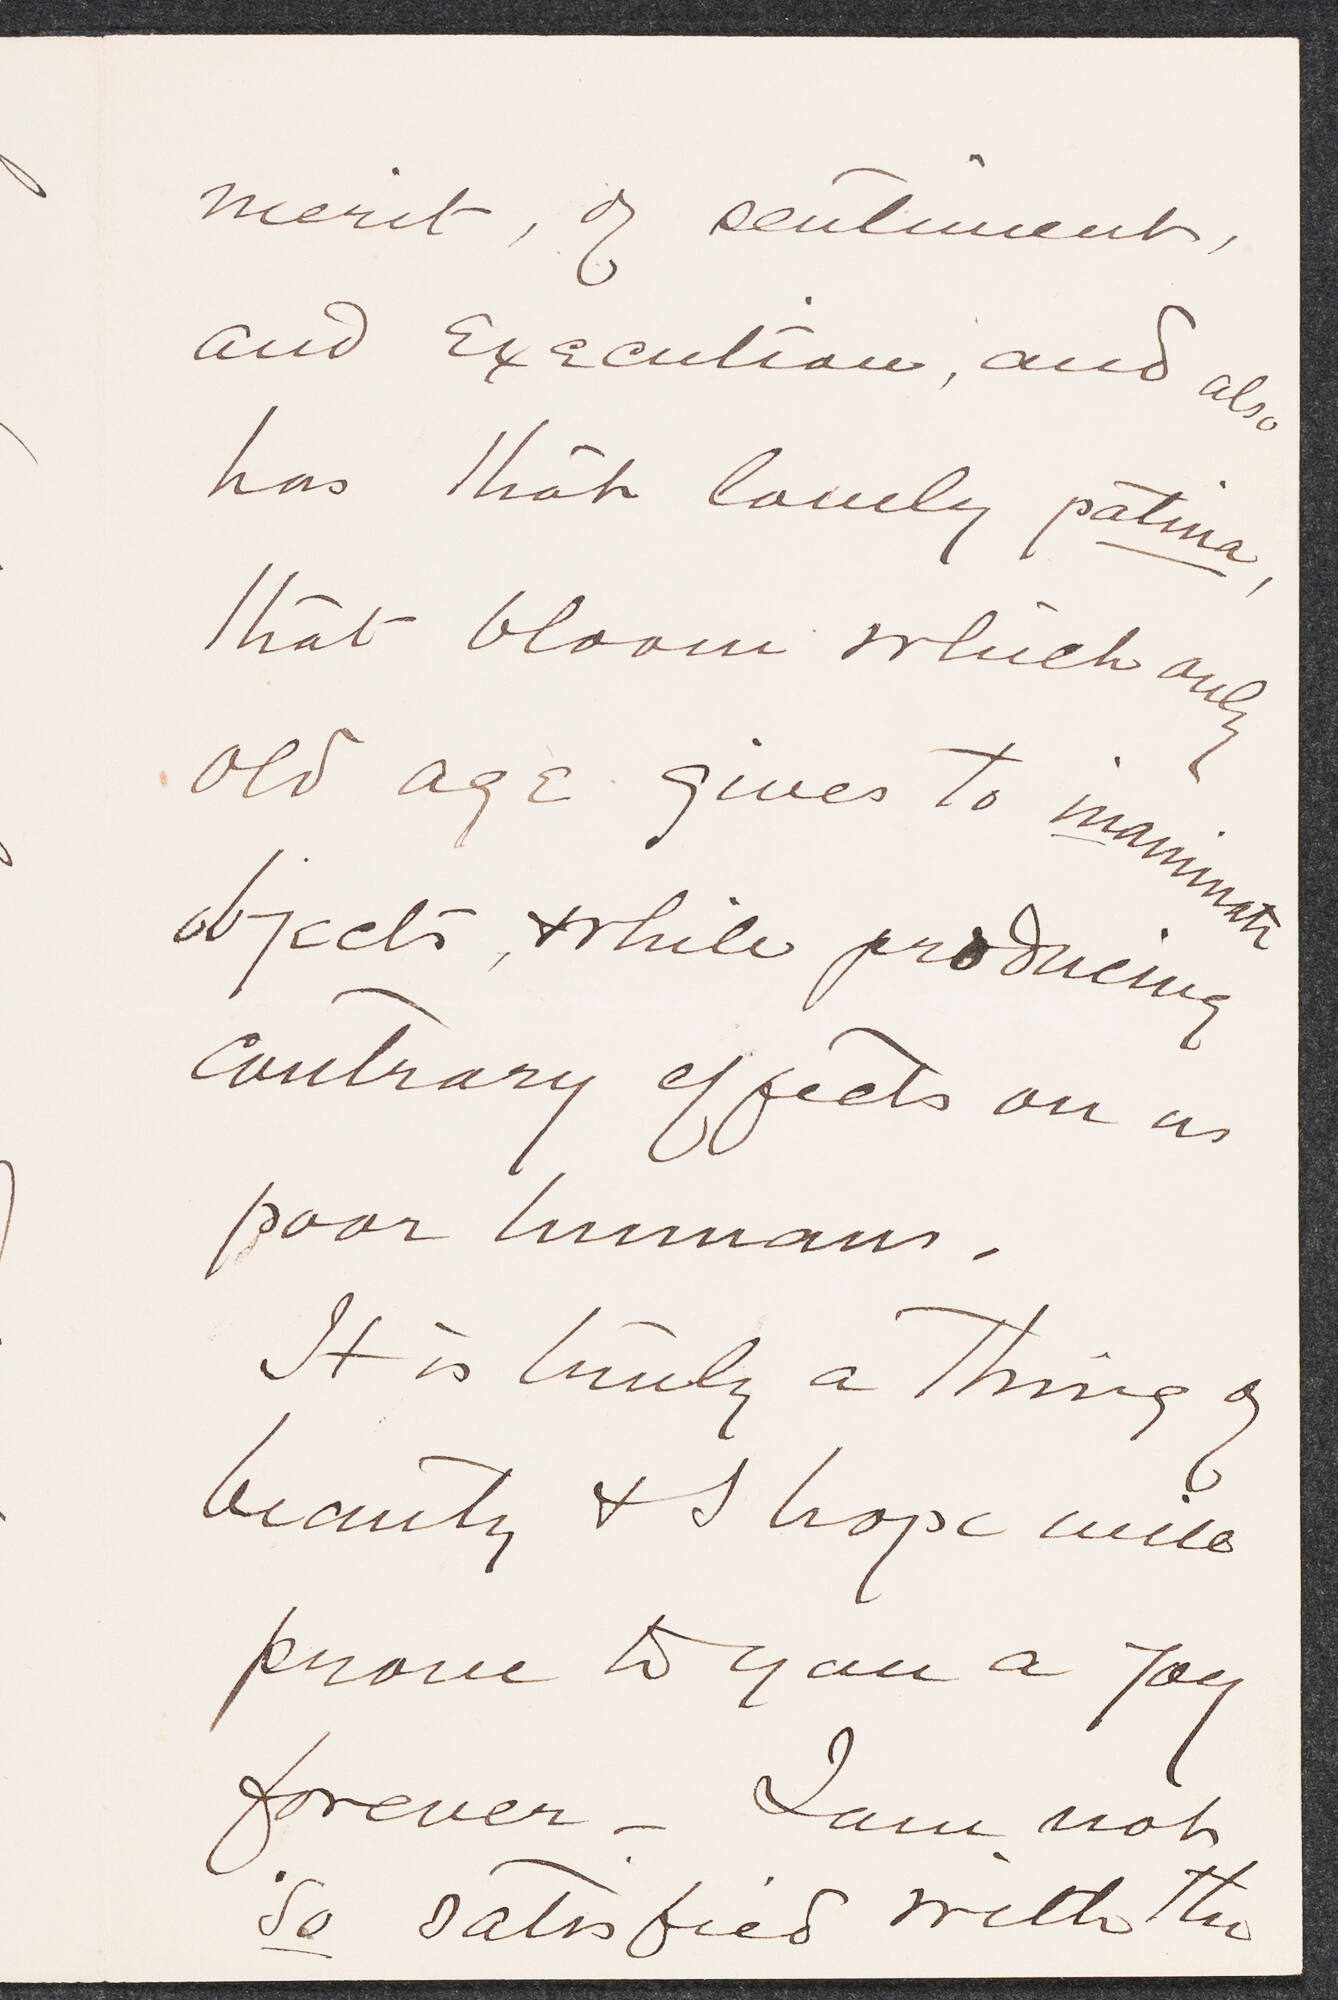 merit, of sentiment,
and Execution, and also
has that lovely patina,
that bloom which only
old age gives to inanimate
objects, & while producing
contrary effects on us
poor humans.
It is truly a thing of
beauty & I hope will
prove to you a joy
forever – I am not
so satisfied with the